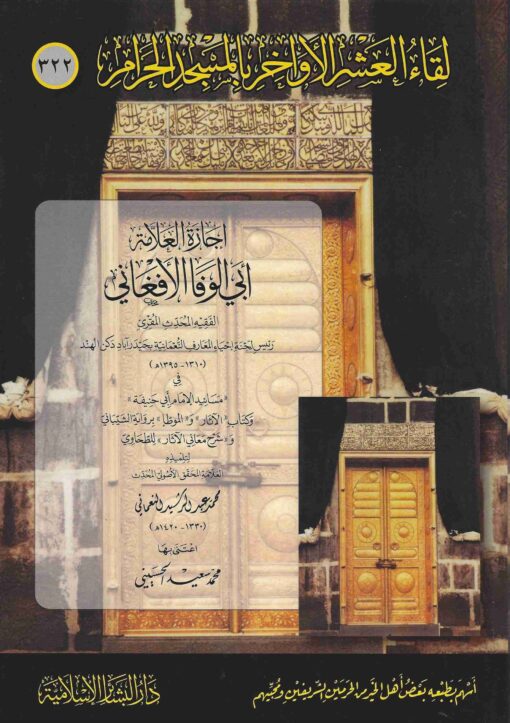 لِقَاءُ العَشْرِ الأَوَاخِرِ بِالمَسْجِدِ الحَرَامِ
٣٢٢
إجَازَةُ العَلَّامَة
أبي الوَفَا الأفْغَاني
الفَقِيهِ المُحَدِّثِ المُقْرِئ
رَئِيسِ لَجْنَةِ إحْيَاءِ المَعَارِفِ النُّعْمَانِيَّةِ بحَيْدَرآبَاد دَكَن الهِنْد
(١٣١٠ - ١٣٩٥هـ)
في
«مسَانِيدِ الإمَامِ أبي حَنِيفَة»
وَكتَابِ «الآثَار» وَ«المُوَطَّأ» بِرِوَايَةِ الشَّيْبَانيّ
وَ«شَرْحِ مَعَاني الآثَار» لِلطَّحَاوِيّ
لتلميذِهِ
العَلَّامَةِ المُحَقِّقِ الأُصُوليّ المُحَدِّث
محمد عبد الرشيد النعماني
(١٣٣٠ - ١٤٢٠هـ)
اعْتَنَى بِهَا
محمد سعيد الحسيني
أَسْهَمَ بِطَبْعِهِ بَعْضُ أَهْلِ الخَيْرِ مِنَ الحَرَمَيْنِ الشَّرِيفَيْنِ وَمُحِبِّيهِم
دَارُ البَشَائِرِ الإسْلَامِيَّة